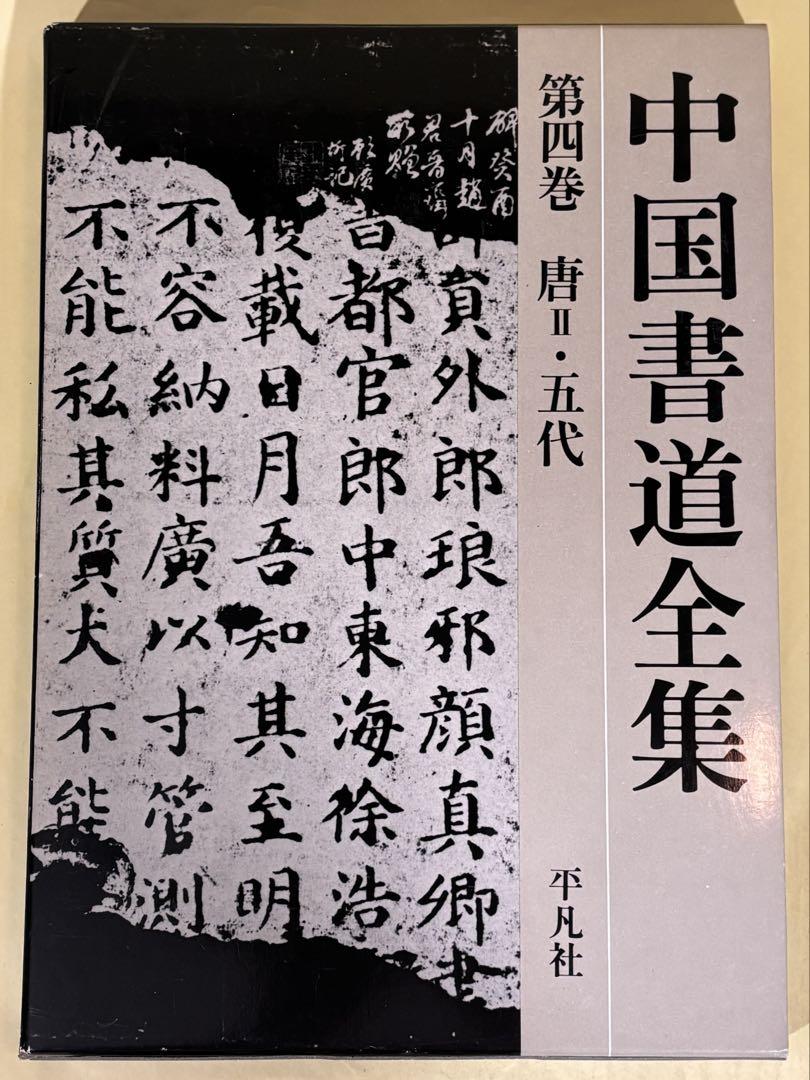 中国書道全集
第四巻 唐Ⅱ・五代
平凡社
碑癸酉
十月趙
君晉齋
所贈
員外郎琅邪顔真卿書
昔都官郎中東海徐浩
載日月吾知其至明
不容納料廣以寸管測
不能私其質犬不能